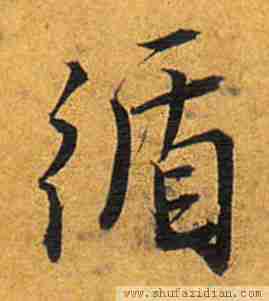 循
www.shufazidian.com